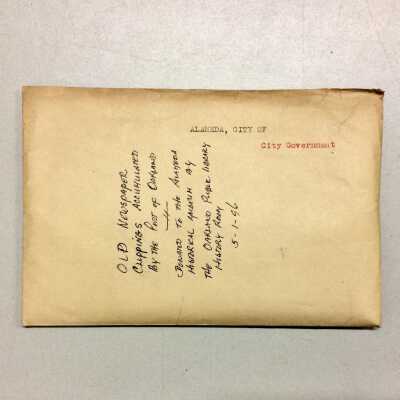 ALAMEDA, CITY OF
City Government
OLD NEWSPAPER
CLIPPINGS ACCUMULATED
BY THE PORT OF OAKLAND
DONATED TO THE ALAMEDA
HISTORICAL MUSEUM BY
THE OAKLAND PUBLIC LIBRARY
HISTORY ROOM
5-1-96